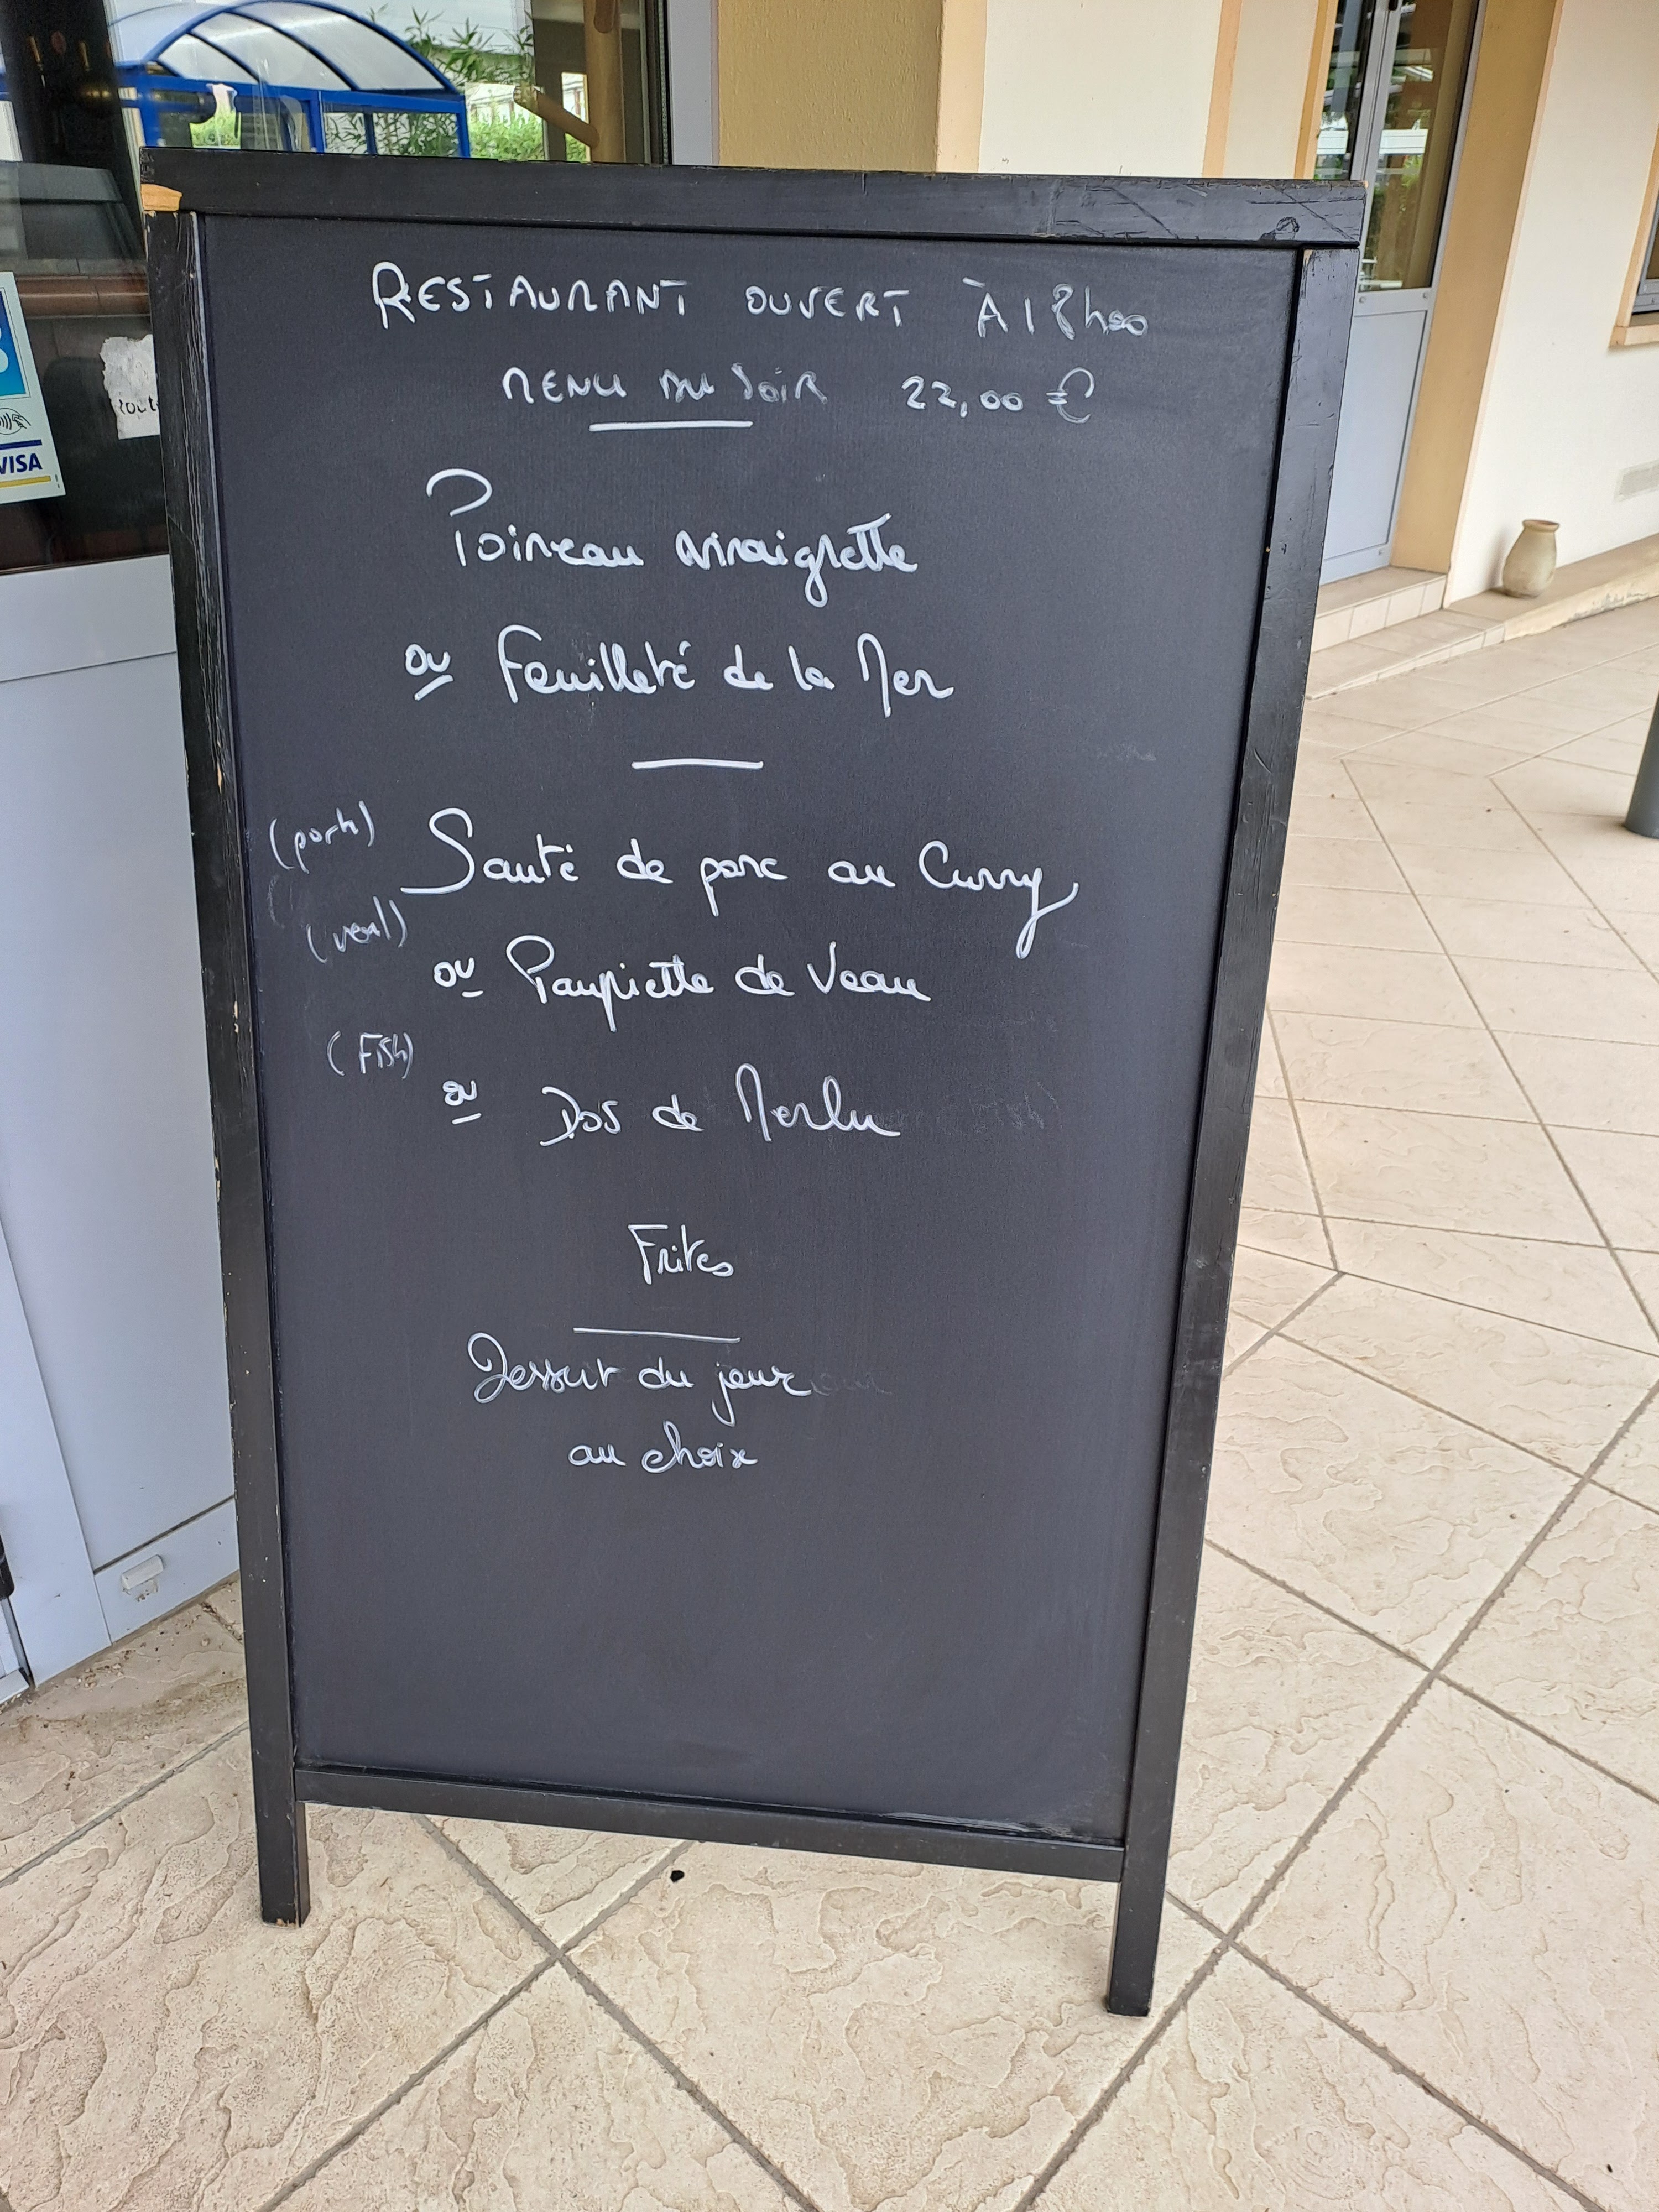 RESTAURANT OUVERT À 18h00
MENU DU SOIR 22,00 €
Poireau vinaigrette
ou Feuilleté de la Mer
(pork) Sauté de porc au Curry
(veal)
ou Paupiette de Veau
(FISH)
ou Dos de Merlu
Frites
Dessert du jour
au choix
VISA